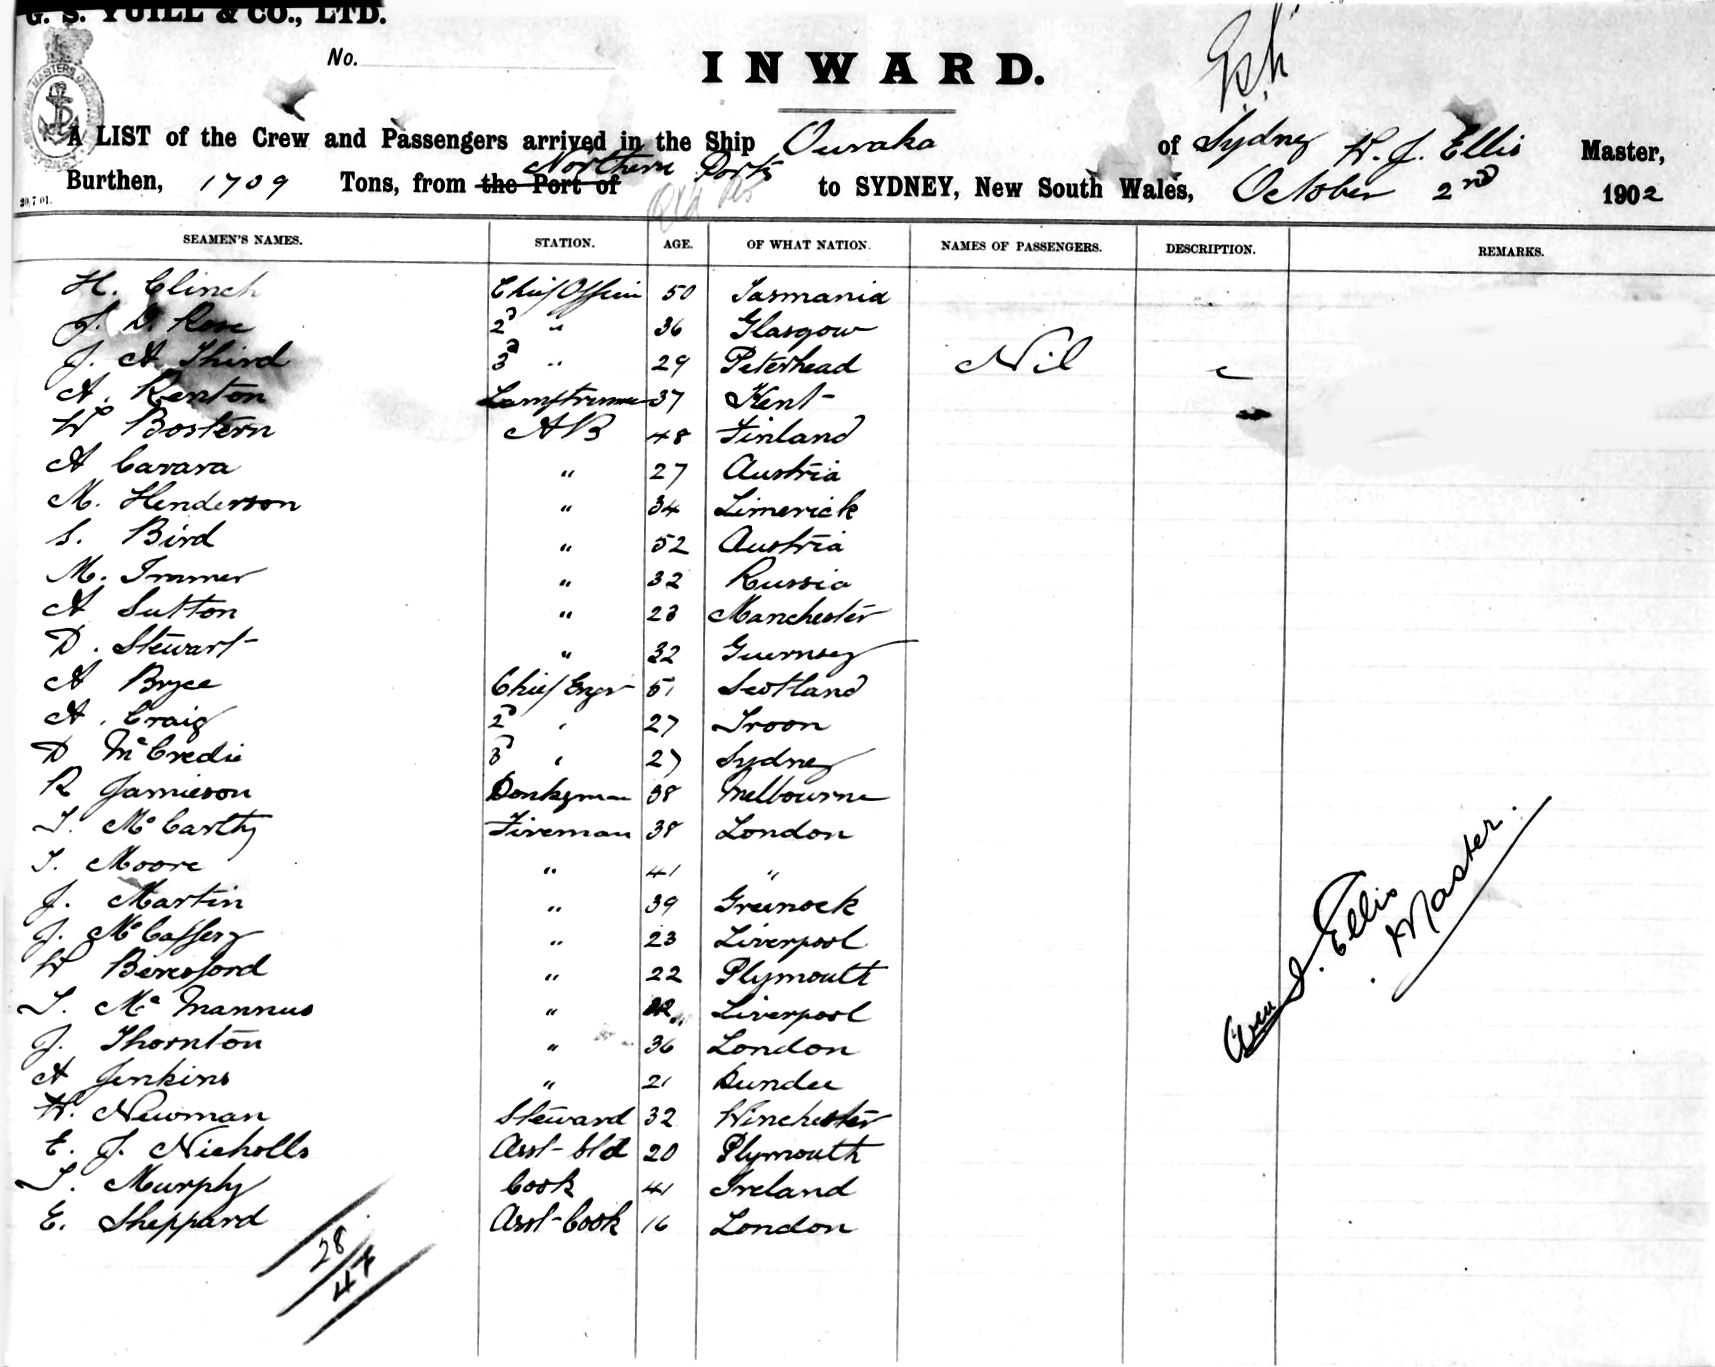 G. S. YUILL & CO., LTD.
No.
INWARD.
A LIST of the Crew and Passengers arrived in the Ship Ouraka of Sydney W. J. Ellis Master,
Burthen, 1709 Tons, from the Port of Northern Ports to SYDNEY, New South Wales, October 2nd 1902
20.7 01.
SEAMEN'S NAMES. STATION. AGE. OF WHAT NATION. NAMES OF PASSENGERS. DESCRIPTION. REMARKS.
H. Clinch Chief Officer 50 Tasmania
J. D. Rose 2d " 36 Glasgow
J. A Third 3d " 29 Peterhead Nil
A. Renton Lamptrimmer 37 Kent
W Bostern AB 48 Finland
A Carara " 27 Austria
M. Henderson " 34 Limerick
S. Bird " 52 Austria
M. " 32 Russia
A Sutton " 23 Manchester
D. Stewart " 32 Guernsey
A Bryce Chief Engr 51 Scotland
A. Craig 2d " 27 Troon
D McCredie 3d " 27 Sydney
R Jamieson Donkyman 38 Melbourne
T. McCarthy Fireman 38 London
T. Moore " 41 "
J. Martin " 39 Greenock
J. McCaffery " 23 Liverpool
W Beresford " 22 Plymouth
T. McMannus " Liverpool
J. Thornton " 36 London
A Jenkins " 21 Dundee
W. Newman Steward 32 Winchester
E. J. Nicholls Asst Std 20 Plymouth
T. Murphy Cook 41 Ireland
E. Sheppard Asst Cook 16 London
28
47
J. Ellis
Master.